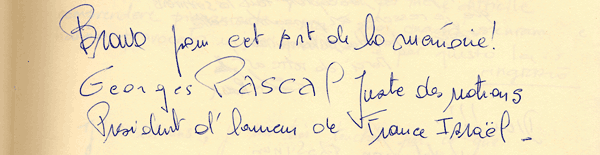 Bravo pour cet art de la mémoire!
Georges Pascal Juste des nations
President d'honneur de France Israël -